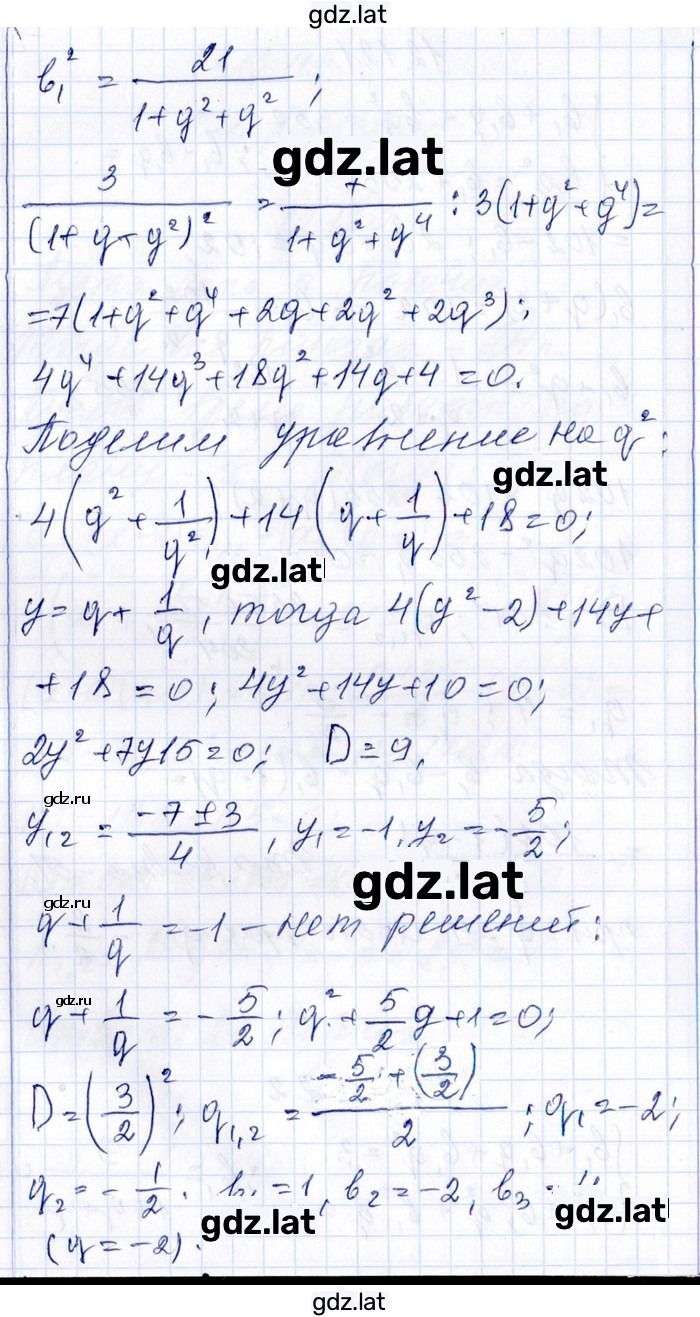 gdz.lat
b₁² = 21/(1+q²+q²) ;
gdz.lat
3/(1+q+q²)² = 7/(1+q²+q⁴) : 3(1+q²+q⁴)=
=7(1+q²+q⁴+2q+2q²+2q³);
4q⁴+14q³+18q²+14q+4=0.
Поделим уравнение на q²:
gdz.lat
4(q²+1/q²)+14(q+1/q)+18=0;
gdz.lat
y=q+1/q, тогда 4(y²-2)+14y+
+18=0; 4y²+14y+10=0;
2y²+7y15=0; D=9,
gdz.ru
y₁,₂ = (-7±3)/4, y₁=-1, y₂=-5/2;
gdz.lat
gdz.ru
q+1/q=-1 - нет решений:
gdz.ru
q+1/q=-5/2; q²+5/2q+1=0;
D=(3/2)²; q₁,₂ = (-5/2+(3/2))/2; q₁=-2;
q₂=-1/2. b₁=1, b₂=-2, b₃
gdz.lat
gdz.lat
(q=-2).
gdz.lat